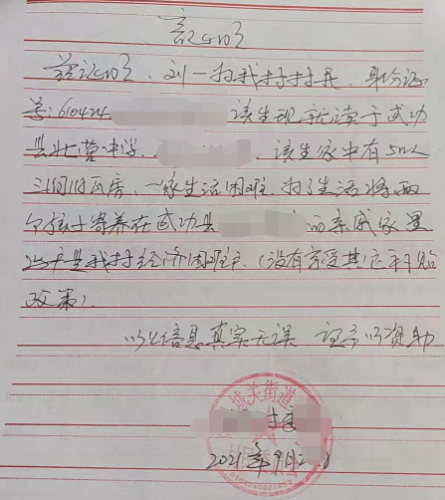 证明
兹证明、刘一 我村村民，身份证
号：610424 该生现就读于武功
县北营中学， 该生家中有5口人
3间旧瓦房，一家生活困难，为了生活将两
个孩子寄养在武功县 的亲戚家里
此户是我村经济困难户．（没有享受其它补贴
政策）．
以上信息真实无误 予以资助
关街道
2021年9月2